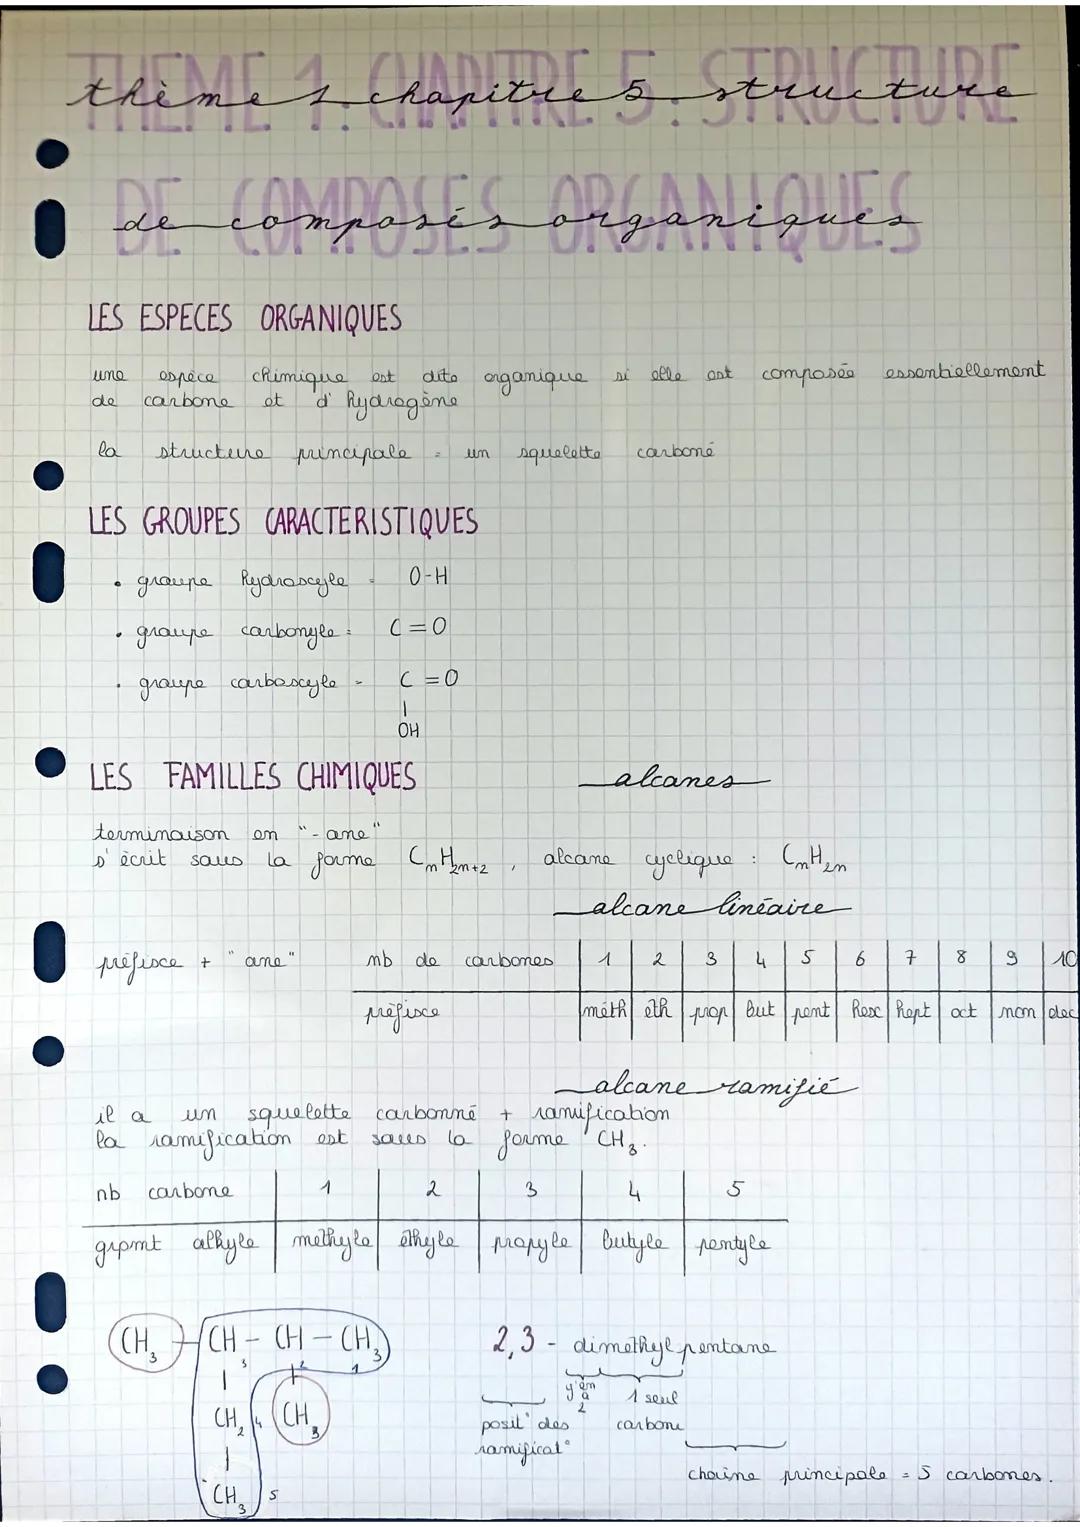 THEME 1. CHAPITRE 5. STRUCTURE
thème 1. chapitre 5. structure
DE COMPOSÉS ORGANIQUES
de composés organiques
LES ESPECES ORGANIQUES
une espèce chimique est dite organique si elle est composée essentiellement
de carbone et d'hydrogène
la structure principale = un squelette carboné
LES GROUPES CARACTERISTIQUES
• groupe hydroxyle = O-H
• groupe carbonyle = C=O
• groupe carboxyle = C=O
|
OH
LES FAMILLES CHIMIQUES alcanes
terminaison en "-ane"
s'écrit sous la forme CnH2n+2, alcane cyclique : CnH2n
alcane linéaire
préfixe + "ane" nb de carbones 1 2 3 4 5 6 7 8 9 10
préfixe méth éth prop but pent hex hept oct non dec
alcane ramifié
il a un squelette carbonné + ramification
la ramification est sous la forme CH3.
nb carbone 1 2 3 4 5
grpmt alkyle méthyle éthyle propyle butyle pentyle
CH3 - CH - CH - CH3 2,3 - diméthylpentane
3 2 1
| | y'en a 2 1 seul
CH2 4 CH3 posit° des carbone
| ramificat°
chaîne principale = 5 carbones.
CH3 5